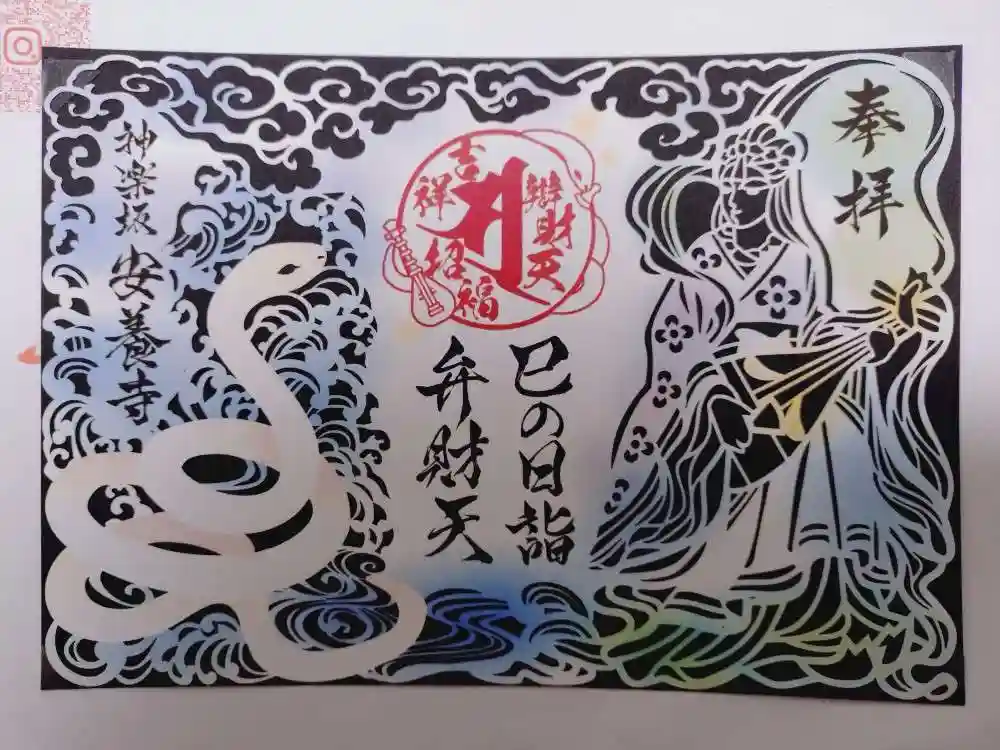 奉拝
辨財天
吉祥招福
巳の日詣
弁財天
神楽坂 安養寺